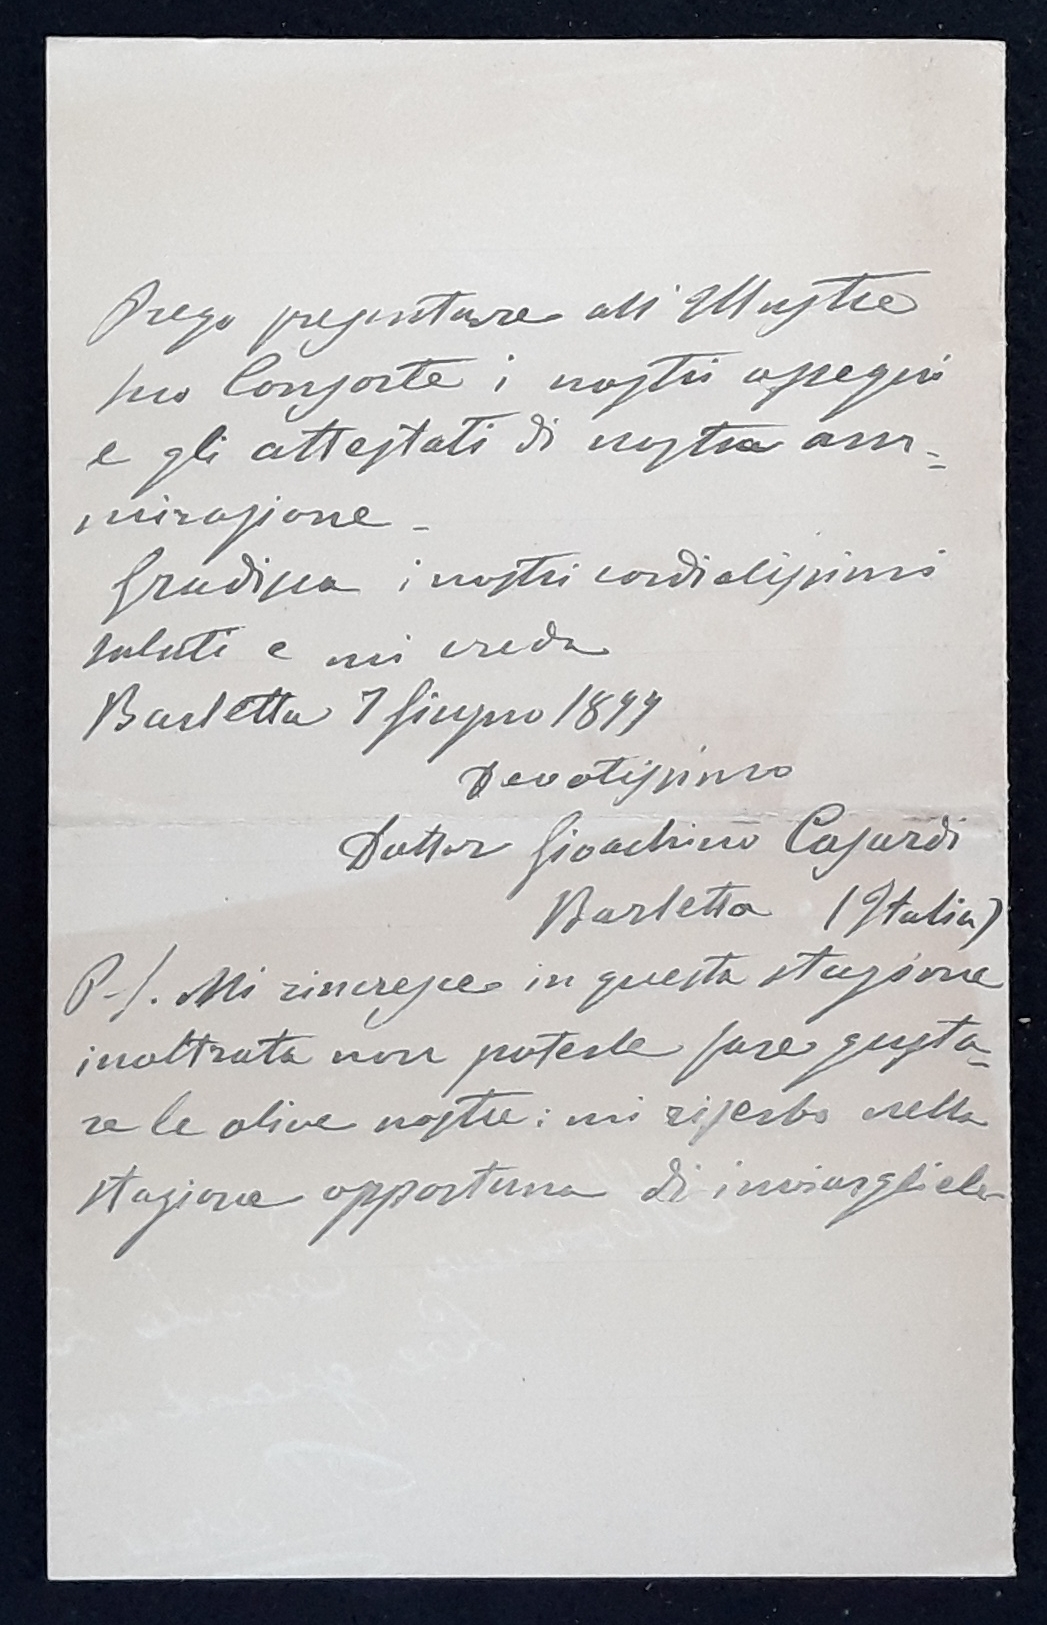 Prego presentare all'Illustre
suo Consorte i nostri ossequi
e gli attestati di nostra am-
mirazione -
Gradisca i nostri cordialissimi
saluti e mi creda
Barletta 7 Giugno 1899
Devotissimo
Dottor Gioachino Casardi
Barletta (Italia)
P.S. Mi rincresce in questa stagione
inoltrata non poterle fare gusta-
re le olive nostre: mi riserbo nella
stagione opportuna di inviargliele